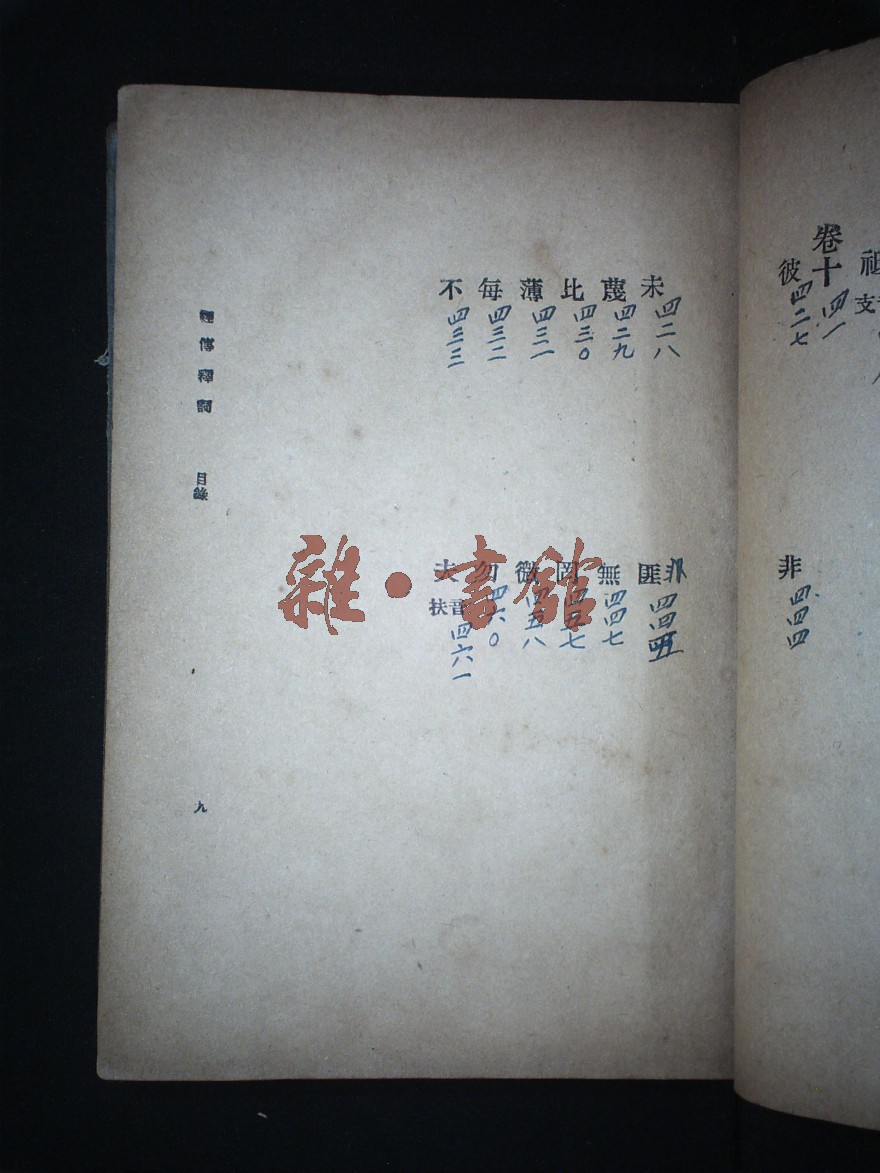 卷十
彼 四二七
非 四四四
未 四二八
匪 四四五
蔑 四二九
無 四四七
比 四三〇
罔 四五七
薄 四三一
微 四五八
每 四三二
勿 四六〇
不 四三三
夫 音扶 四六一
經傳釋詞 目錄 九
雜·書館